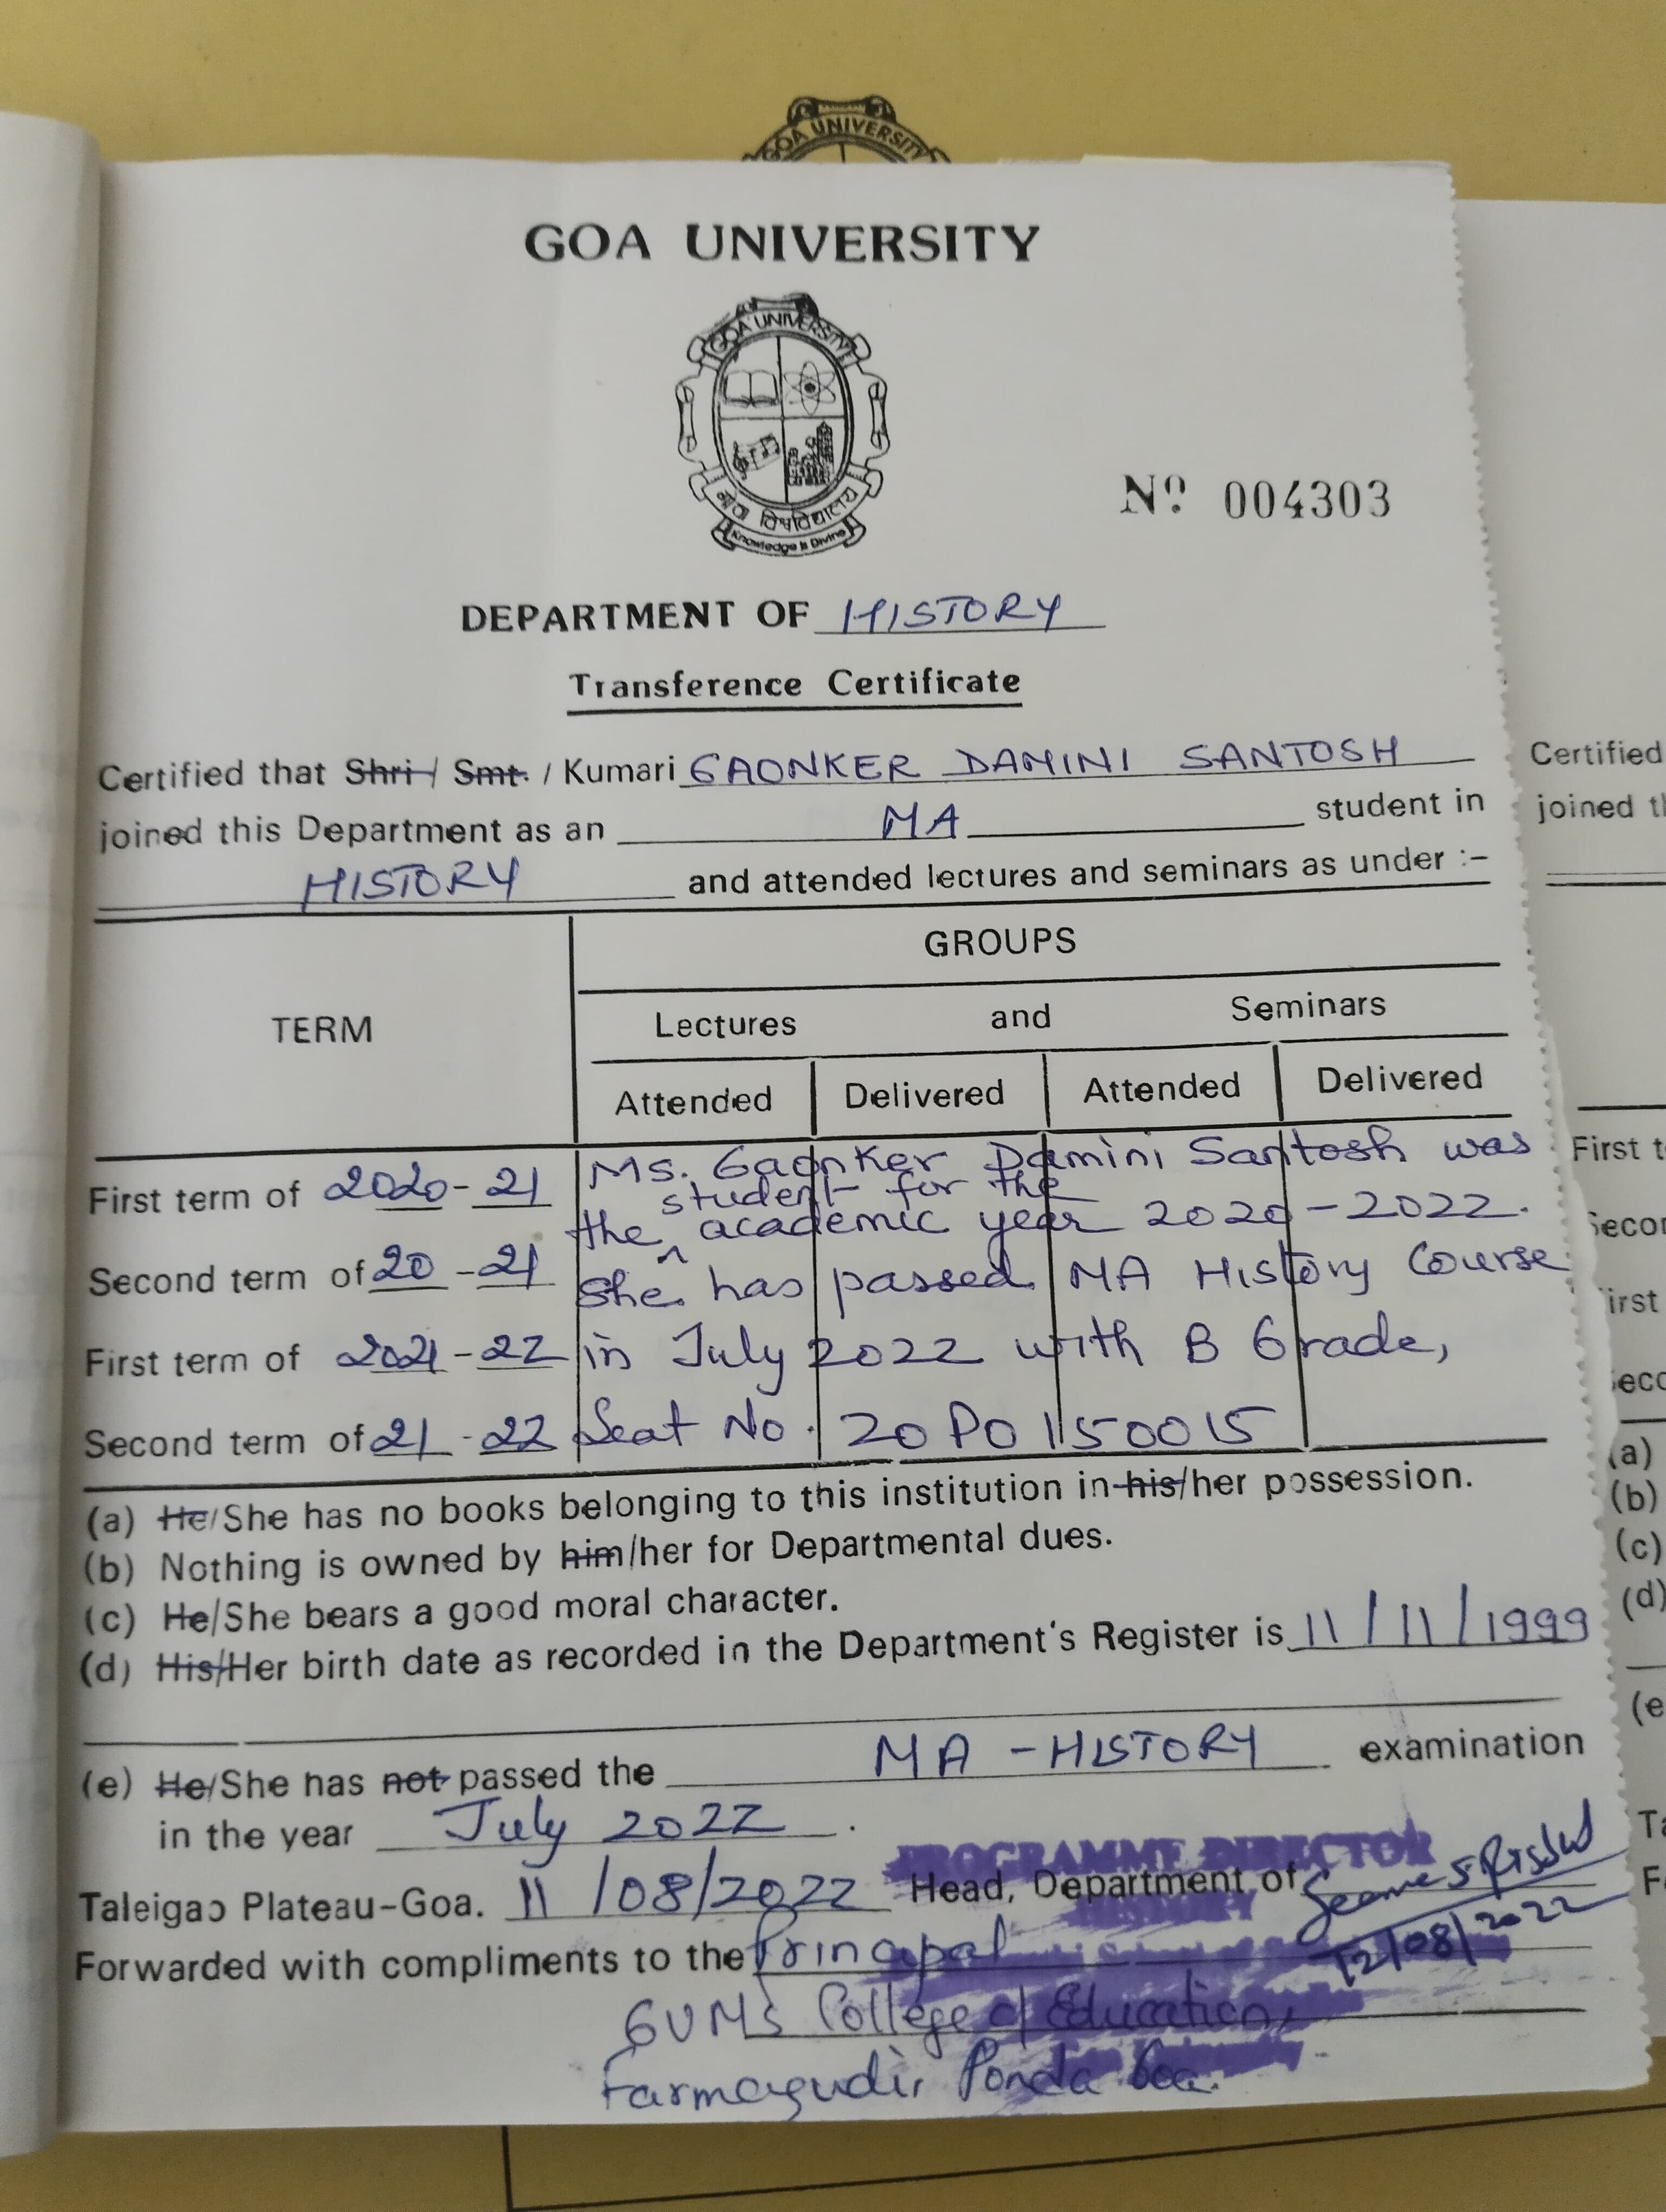 GOA UNIVERSITY
GOA UNIVERSITY
GOA UNIVERSITY
गोंय विश्वविद्यालय
Knowledge is Divine
Nº 004303
DEPARTMENT OF HISTORY
Transference Certificate
Certified that Shri / Smt. / Kumari GAONKER DAMINI SANTOSH
joined this Department as an MA student in
HISTORY and attended lectures and seminars as under :-
TERM
GROUPS
Lectures and Seminars
Attended Delivered Attended Delivered
First term of 2020-21
Second term of 20-21
First term of 2021-22
Second term of 21-22
Ms. Gaonker Damini Santosh was
student for the
the academic year 2020-2022.
She has passed MA History Course
in July 2022 with B Grade,
Seat No. 20PO1150015
(a) He/She has no books belonging to this institution in his/her possession.
(b) Nothing is owned by him/her for Departmental dues.
(c) He/She bears a good moral character.
(d) His/Her birth date as recorded in the Department's Register is 11/11/1999
(e) He/She has not passed the MA - HISTORY examination
in the year July 2022.
PROGRAMME DIRECTOR
Taleigao Plateau-Goa. 11/08/2022 Head, Department of
HISTORY
12/08/2022
Forwarded with compliments to the Principal
GVM's College of Education,
Farmagudi, Ponda Goa.
Certified
joined
First
(a)
(b)
(c)
(d)